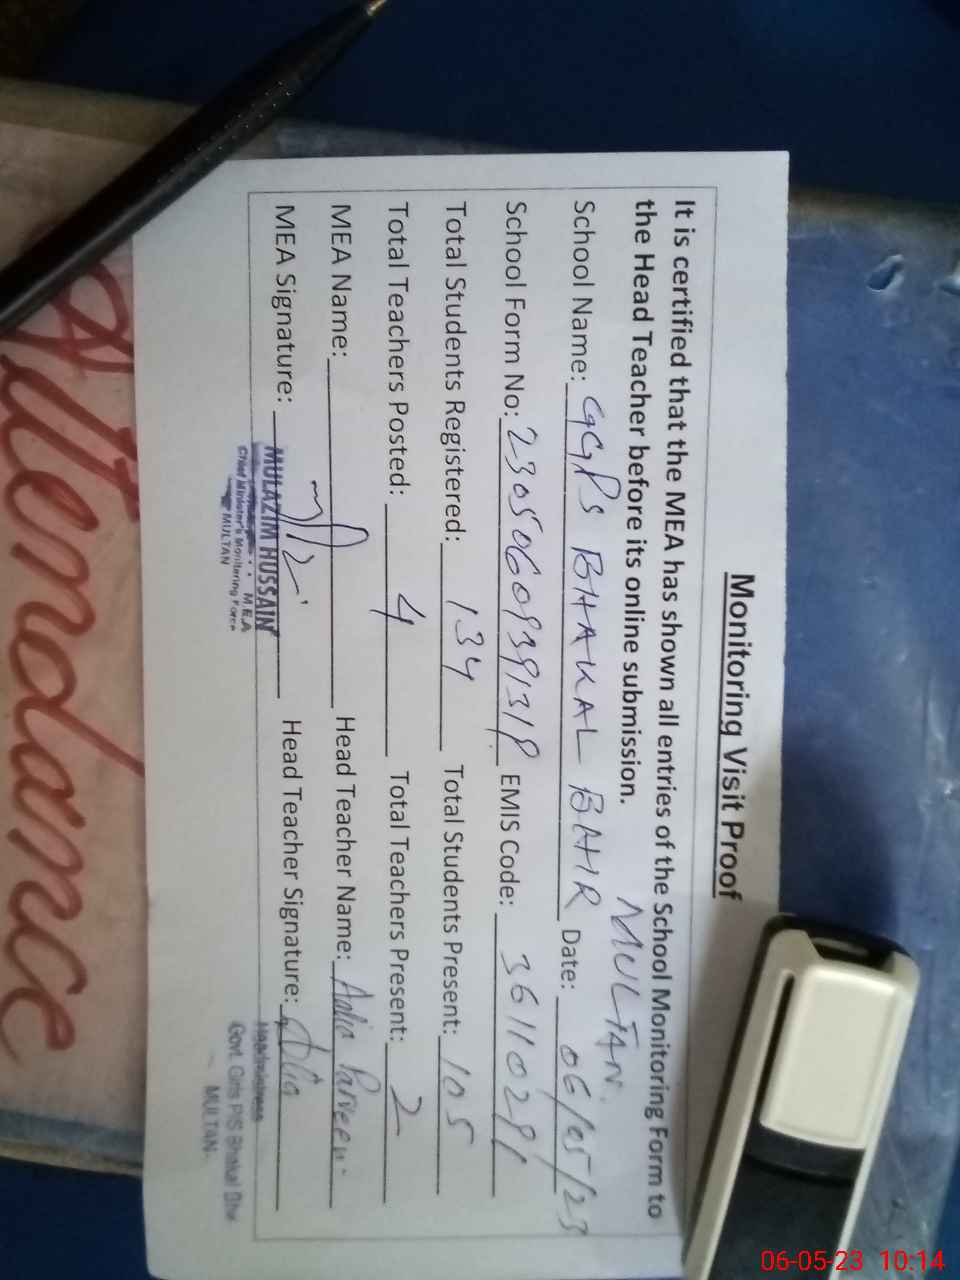 Monitoring Visit Proof
It is certified that the MEA has shown all entries of the School Monitoring Form to
the Head Teacher before its online submission.
MULTAN.
School Name: GGPS BHAKAL BHIR Date: 06/05/23
School Form No: 23050609391318 EMIS Code: 36110291
Total Students Registered: 134 Total Students Present: 105
Total Teachers Posted: 4 Total Teachers Present: 2
MEA Name: Head Teacher Name: Adia Parveen
MEA Signature: Head Teacher Signature:
MULAZIM HUSSAIN
M.E.A
Chief Minister's Monitoring Force
MULTAN
Headmistress
Govt. Girls P/S Bhakal Bhir
MULTAN.
Attendance
06-05-23 10:14